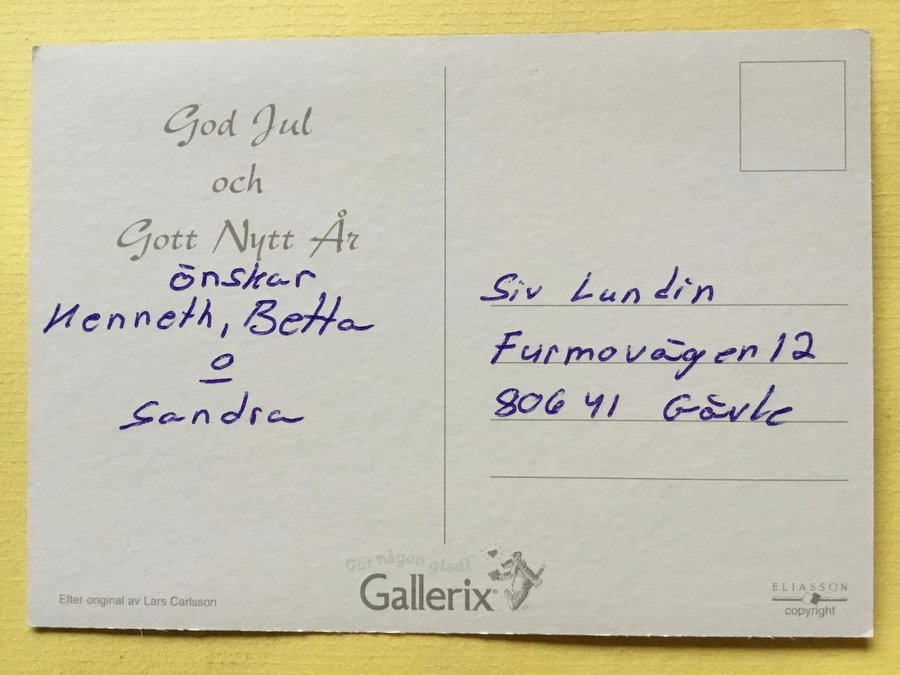 God Jul
och
Gott Nytt År
önskar
Kenneth, Betta
o
Sandra
Siv Lundin
Furmovägen 12
806 41 Gävle
Gör någon glad!
Gallerix
Efter original av Lars Carlsson
ELIASSON
copyright